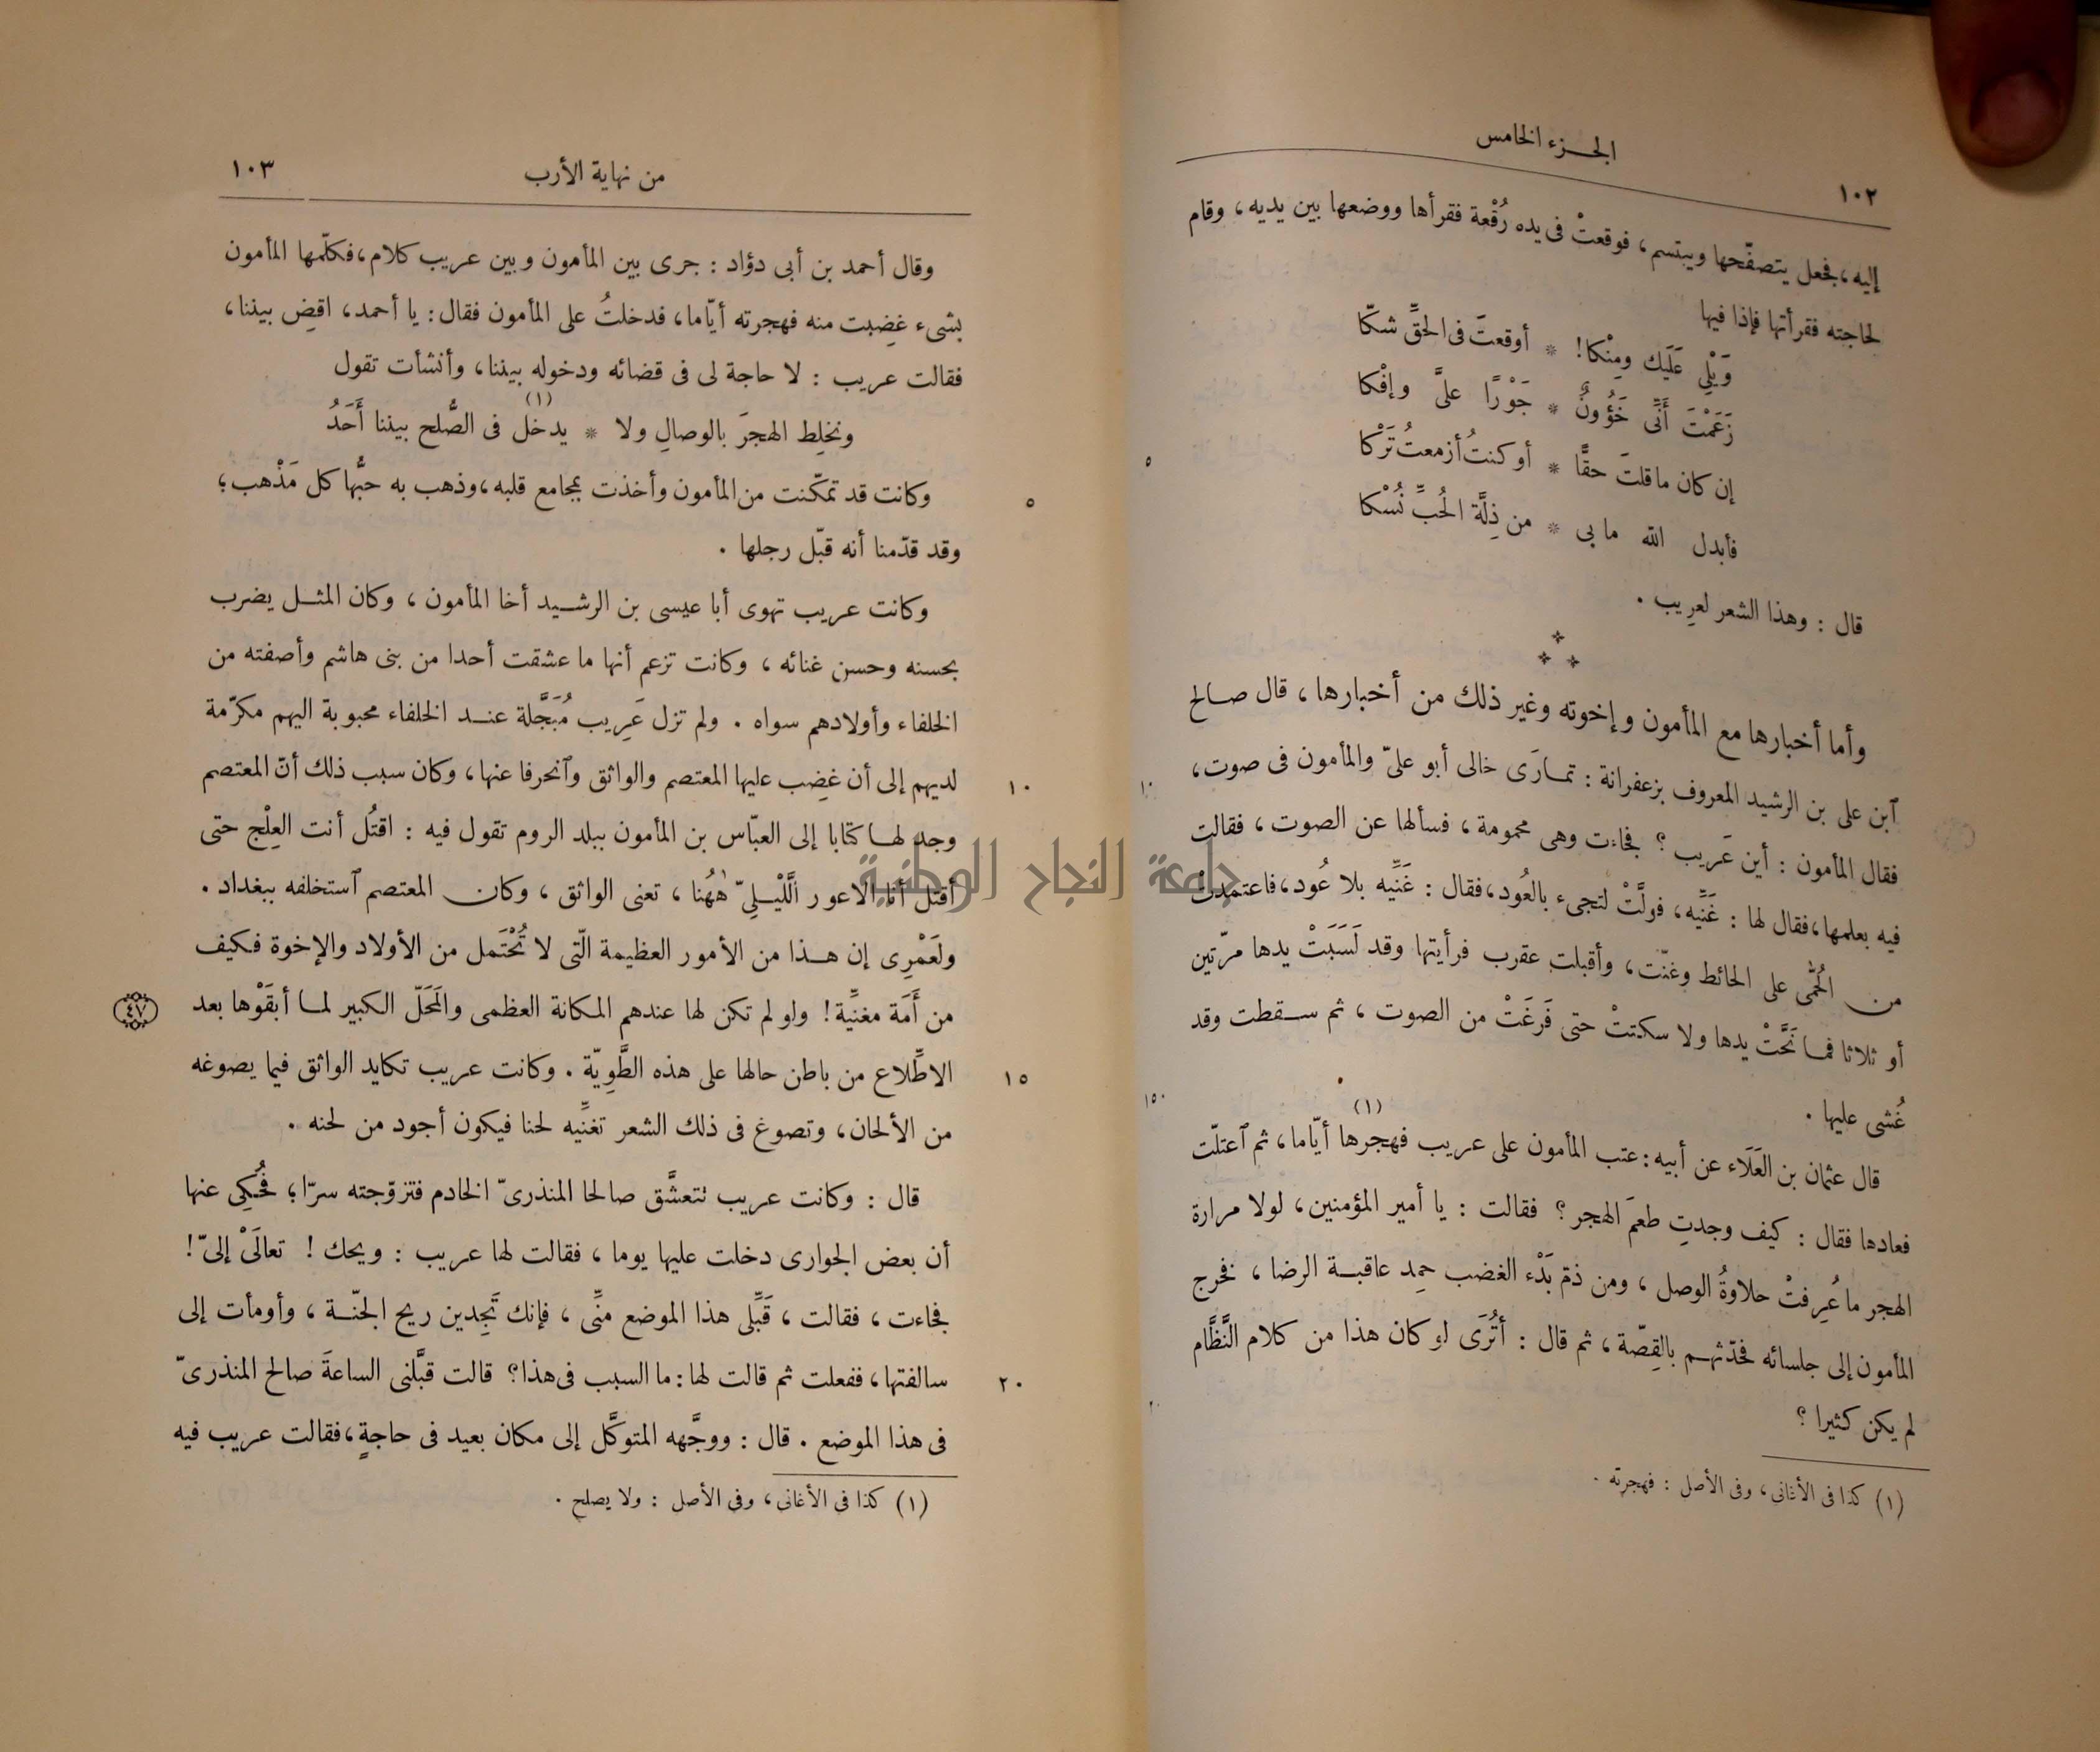 الجزء الخامس
١٠٢
إليه، فجعل يتصفّحها ويبتسم، فوقعتْ فى يده رُقْعة فقرأها ووضعها بين يديه، وقام
لحاجته فقرأتها فإذا فيها
وَيْلِي عَلَيك ومِنْكا! * أوقعتَ فى الحقِّ شكّا
زَعَمْتَ أَنِّى خَؤُونٌ * جَوْرًا علىَّ وإفْكا
إن كان ما قلتَ حقًّا * أو كنتُ أزمعتُ تَرْكا
٥
فأبدل الله ما بى * من ذِلَّة الحُبِّ نُسْكا
قال : وهذا الشعر لعرِيب .
وأما أخبارها مع المأمون وإخوته وغير ذلك من أخبارها، قال صالح
ٱبن على بن الرشيد المعروف بزعفرانة : تمارَى خالى أبو علىّ والمأمون فى صوت،
١٠
فقال المأمون : أين عَرِيب ؟ فجاءت وهى محمومة، فسألها عن الصوت، فقالت
فيه بعلمها، فقال لها : غَنِّيه، فولَّتْ لتجىء بالعُود، فقال : غَنِّيه بلا عُود، فاعتمدتْ
من الحُمَّى على الحائط وغنّت، وأقبلت عقرب فرأيتها وقد لَسَبَتْ يدها مرّتين
أو ثلاثا فما نَحَّتْ يدها ولا سكتتْ حتى فَرَغَتْ من الصوت، ثم سقطت وقد
غُشى عليها .
١٥
قال عثمان بن العَلَاء عن أبيه : عتب المأمون على عريب فهجرها (١) أيّاما، ثم ٱعتلّت
فعادها فقال : كيف وجدتِ طعمَ الهجر ؟ فقالت : يا أمير المؤمنين، لولا مرارة
الهجر ما عُرِفتْ حلاوةُ الوصل، ومن ذمّ بَدْء الغضب حمِد عاقبة الرضا، فخرج
المأمون إلى جلسائه فحدّثهم بالقِصّة، ثم قال : أتُرَى لو كان هذا من كلام النَّظَّام
لم يكن كثيرا ؟
٢٠
(١) كذا فى الأغانى، وفى الأصل : فهجرته .
من نهاية الأرب
١٠٣
وقال أحمد بن أبى دؤاد : جرى بين المأمون وبين عريب كلام، فكلّمها المأمون
بشىء غضِبت منه فهجرته أيّاما، فدخلتُ على المأمون فقال : يا أحمد، اقضِ بيننا،
فقالت عريب : لا حاجة لى فى قضائه ودخوله بيننا، وأنشأت تقول
ونخلِط الهجرَ بالوصالِ ولا * يدخل (١) فى الصُّلح بيننا أَحَدُ
وكانت قد تمكّنت من المأمون وأخذت بمجامع قلبه، وذهب به حبُّها كل مَذْهب؛
٥
وقد قدّمنا أنه قبّل رجلها .
وكانت عريب تهوى أبا عيسى بن الرشيد أخا المأمون، وكان المثل يضرب
بحسنه وحسن غنائه، وكانت تزعم أنها ما عشقت أحدا من بنى هاشم وأصفته من
الخلفاء وأولادهم سواه . ولم تزل عَرِيب مُبَجَّلة عند الخلفاء محبوبة اليهم مكرّمة
لديهم إلى أن غضِب عليها المعتصم والواثق وٱنحرفا عنها، وكان سبب ذلك أنّ المعتصم
١٠
وجد لها كتابا إلى العبّاس بن المأمون ببلد الروم تقول فيه : اقتُل أنت العِلْج حتى
أقتل أنا الاعور الَّليْلِىّ هٰهُنا، تعنى الواثق، وكان المعتصم ٱستخلفه ببغداد .
جامعة النجاح الوطنية
ولَعَمْرِى إن هذا من الأمور العظيمة الّتى لا تُحْتَمل من الأولاد والإخوة فكيف
من أَمَة مغنِّية ! ولو لم تكن لها عندهم المكانة العظمى والمَحَلّ الكبير لما أبقَوْها بعد
٤٧
الاطِّلاع من باطن حالها على هذه الطَّوِيّة . وكانت عريب تكايد الواثق فيما يصوغه
١٥
من الألحان، وتصوغ فى ذلك الشعر تغنِّيه لحنا فيكون أجود من لحنه .
قال : وكانت عريب تتعشَّق صالحا المنذرىّ الخادم فتزوّجته سرّا؛ فحُكِى عنها
أن بعض الجوارى دخلت عليها يوما، فقالت لها عريب : ويحك ! تعالَىْ إلىّ !
فجاءت، فقالت، قَبِّلى هذا الموضع منِّى، فإنك تَجِدين ريح الجنّة، وأومأت إلى
سالفتها، ففعلت ثم قالت لها : ما السبب فى هذا ؟ قالت قبَّلنى الساعةَ صالح المنذرىّ
٢٠
فى هذا الموضع . قال : ووجَّهه المتوكَّل إلى مكان بعيد فى حاجةٍ، فقالت عريب فيه
(١) كذا فى الأغانى، وفى الأصل : ولا يصلح .